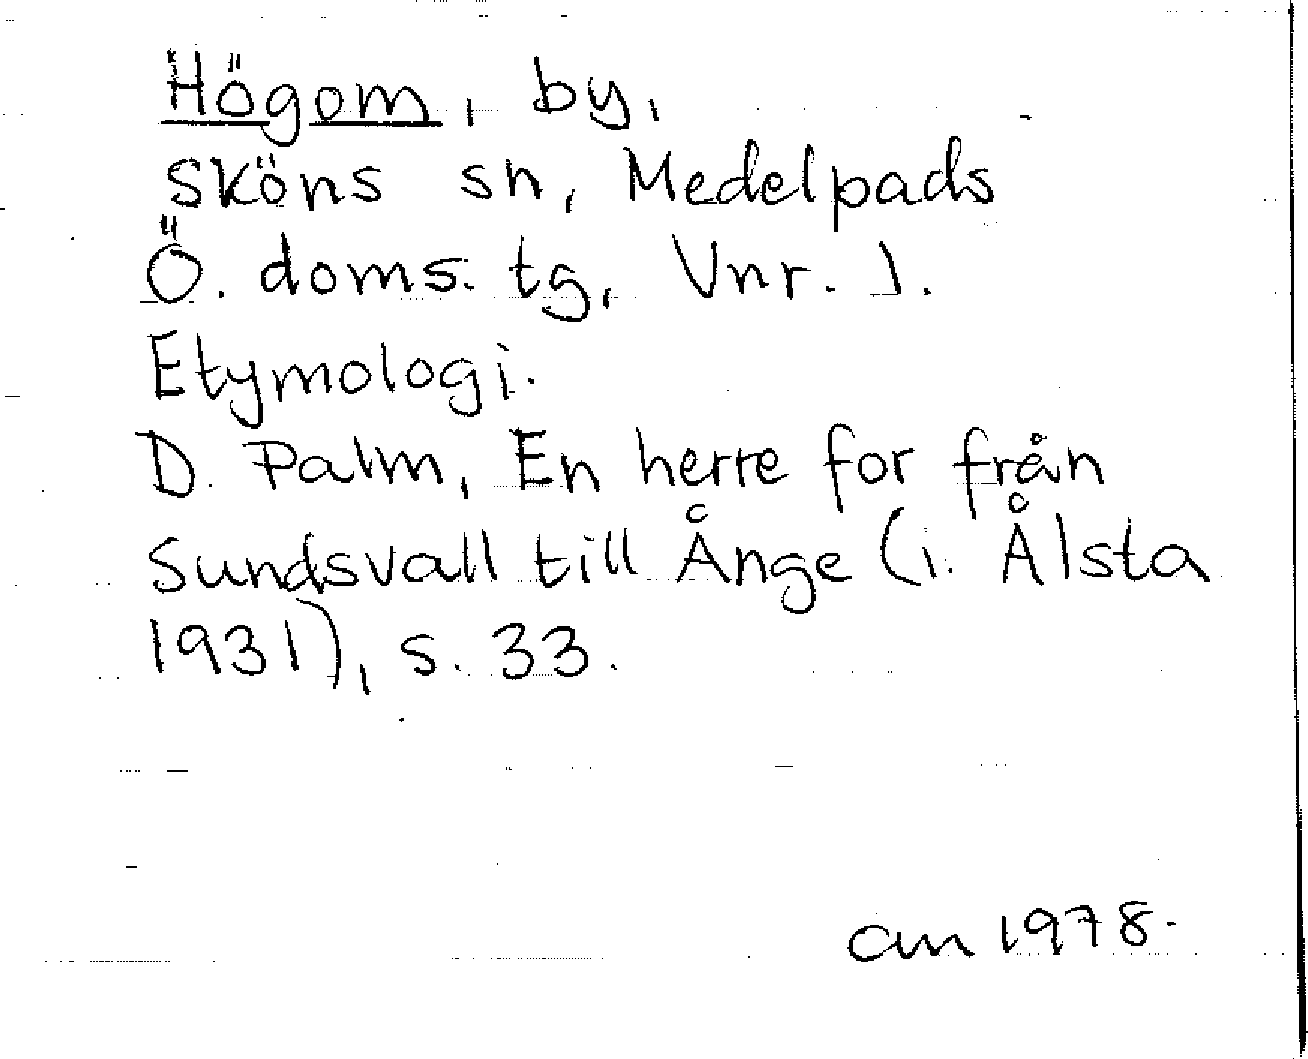 Högom, by,
Sköns sn, Medelpads
Ö. doms. tg, Vnr. 1.
Etymologi.
D. Palm, En herre for från
Sundsvall till Ånge (i. Ålsta
1931), s. 33.
am 1978.